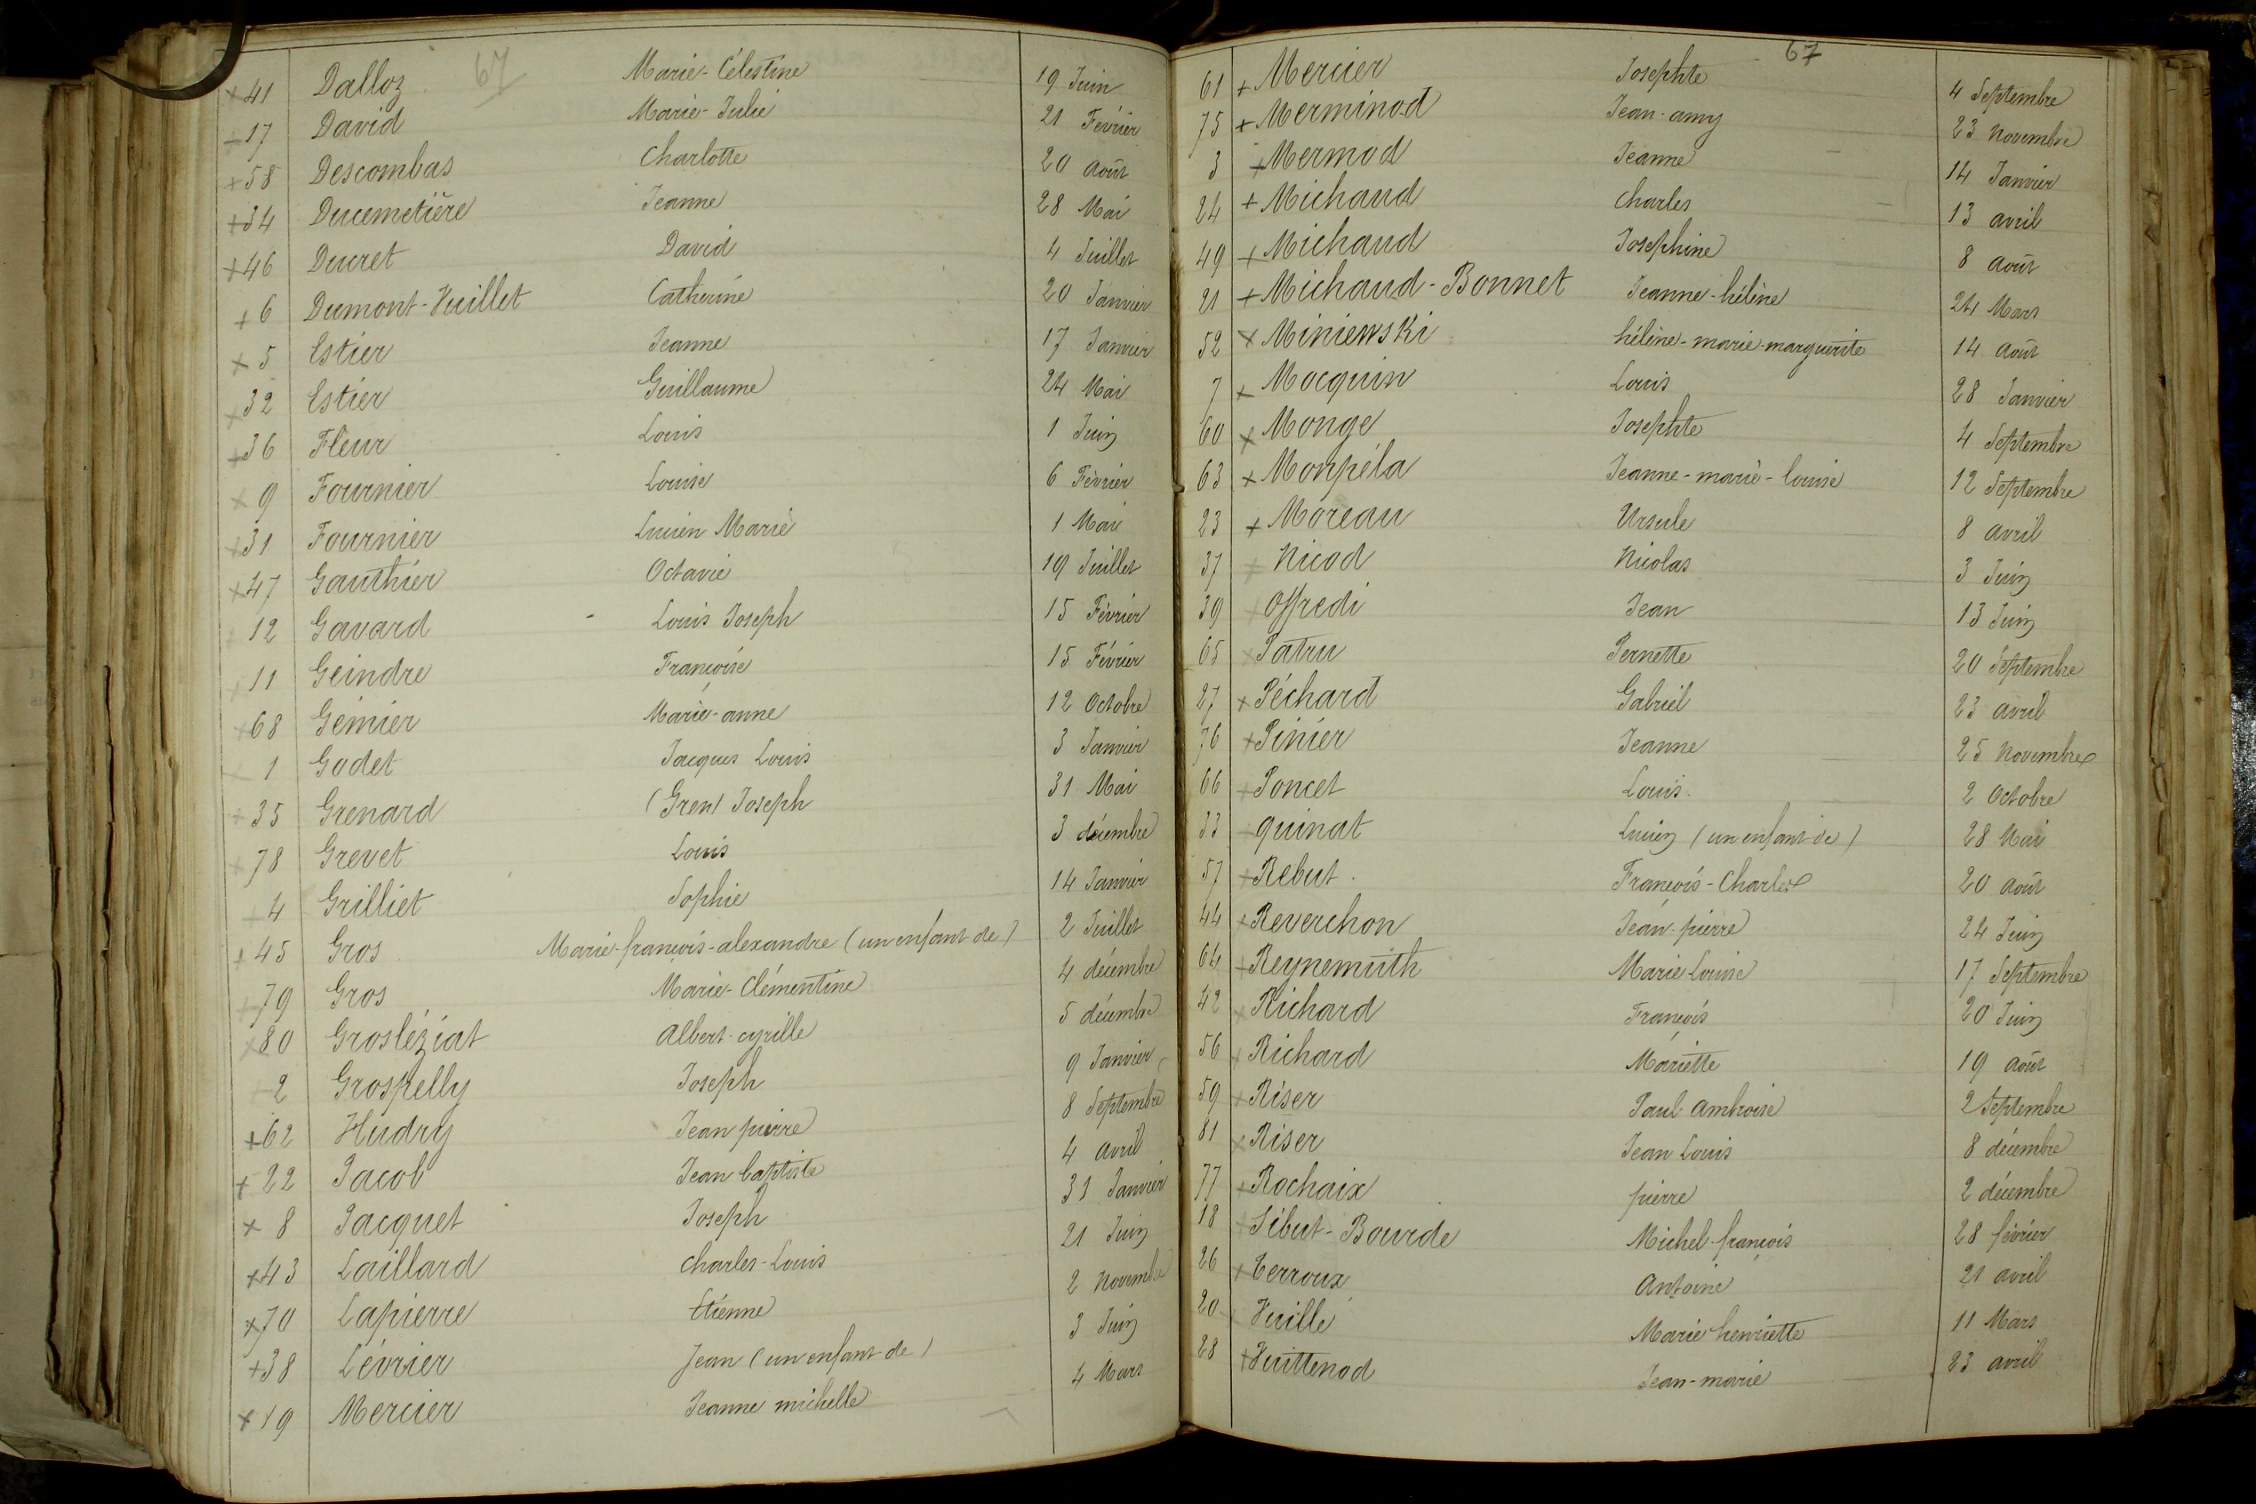 67
+41 Dalloz Marie-Célestine 19 Juin
+17 David Marie-Julie 21 Février
+58 Descombas Charlotte 20 août
+34 Ducemetière Jeanne 28 Mai
+46 Ducret David 4 Juillet
+6 Dumont-Vuillet Catherine 20 Janvier
+5 Estier Jeanne 17 Janvier
+32 Estier Guillaume 24 Mai
+36 Fleur Louis 1 Juin
+9 Fournier Louise 6 Février
+31 Fournier Lucien Marie 1 Mai
+47 Gauthier Octavie 19 Juillet
12 Gavard Louis Joseph 15 Février
11 Geindre Françoise 15 Février
+68 Gémier Marie-anne 12 Octobre
1 Godet Jacques Louis 3 Janvier
+35 Grenard (Gren) Joseph 31 Mai
+78 Grevet Louis 3 décembre
+4 Grilliet Sophie 14 Janvier
+45 Gros Marie-françois-alexandre (un enfant de) 2 Juillet
+79 Gros Marie-Clémentine 4 décembre
+80 Grosléziat Albert-cyrille 5 décembre
2 Grospelly Joseph 9 Janvier
+62 Hudry Jean pierre 8 Septembre
+22 Jacob Jean baptiste 4 avril
+8 Jacquet Joseph 31 Janvier
+43 Laillard Charles-Louis 21 Juin
+70 Lapierre Etienne 2 Novembre
+38 Lévrier Jean (un enfant de) 3 Juin
+19 Mercier Jeanne michelle 4 Mars
67
61 + Mercier Josephte 4 Septembre
75 + Merminod Jean-amy 23 Novembre
3 + Mermod Jeanne 14 Janvier
24 + Michaud Charles 13 avril
49 + Michaud Josephine 8 août
21 + Michaud-Bonnet Jeanne-hélène 24 Mars
52 + Miniewski hélène-marie-marguerite 14 août
7 + Mocquin Louis 28 Janvier
60 + Monge Josephte 4 Septembre
63 + Monpéla Jeanne-marie-louise 12 Septembre
23 + Moreau Ursule 8 avril
37 + Nicod Nicolas 3 Juin
39 + Offredi Jean 13 Juin
65 + Patru Pernette 20 Septembre
27 + Péchard Gabriel 23 avril
76 + Pinier Jeanne 25 Novembre
66 + Poncet Louis 2 Octobre
33 quinat Lucien (un enfant de) 28 Mai
57 + Rebut François-Charles 20 août
44 + Reverchon Jean-pierre 24 Juin
64 + Reynemuth Marie Louise 17 Septembre
42 + Richard François 20 Juin
56 + Richard Mariette 19 août
59 + Riser Paul Ambroise 2 Septembre
81 + Riser Jean Louis 8 décembre
77 + Rochaix pierre 2 décembre
18 Sibut-Bourde Michel-françois 28 février
26 + Terroux Antoine 21 avril
20 Vuille Marie henriette 11 Mars
28 + Vuittenod Jean-marie 23 avril